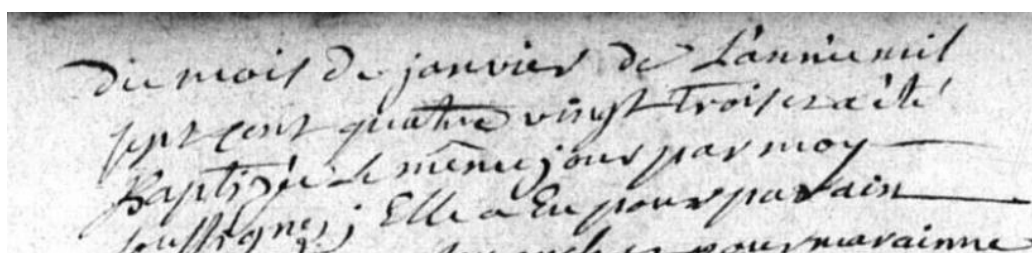 du mois de janvier de L'année mil
sept cent quatre vingt trois et a été
Baptizée Le même jour par moy
soussigné; Elle a Eu pour parain
pour marainne